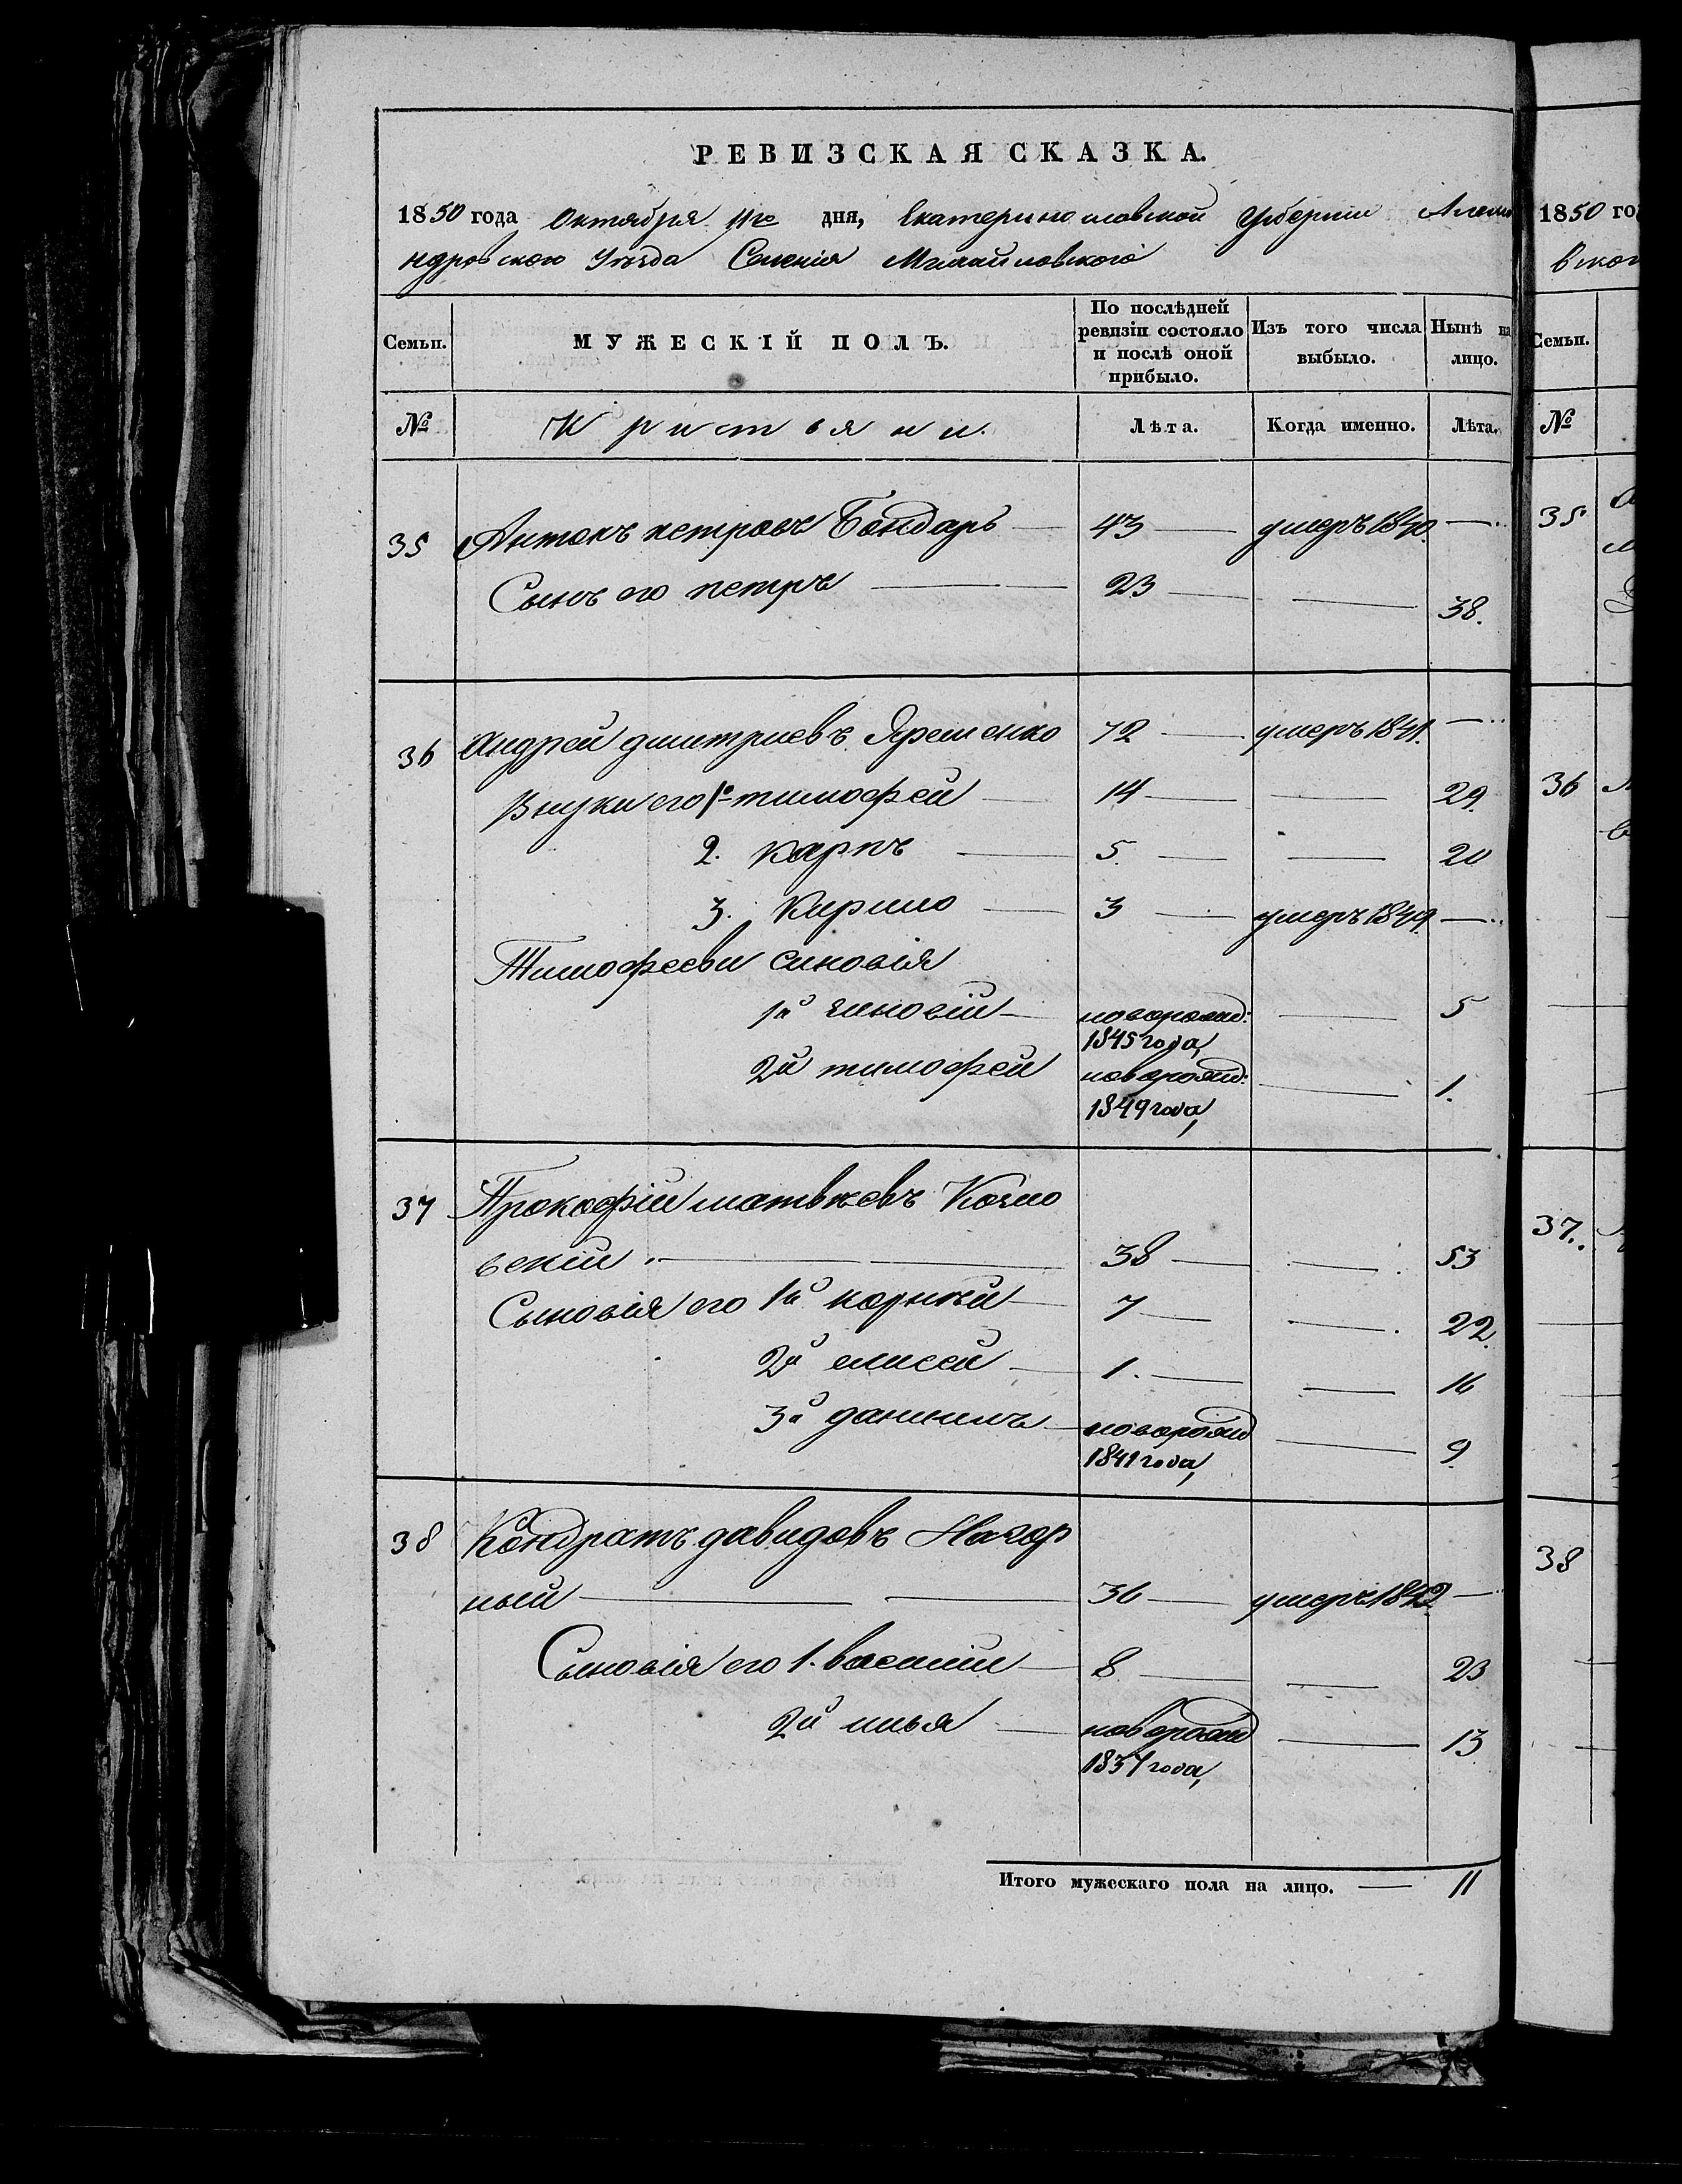 РЕВИЗСКАЯ СКАЗКА.
1850 года Октября 11го дня, Екатеринославской Губернии Алекса
ндровского Уѣзда Селенія Михайловского
Семьи. МУЖЕСКІЙ ПОЛЪ. По послѣдней ревизіи состояло и послѣ оной прибыло. Изъ того числа выбыло. Нынѣ на лицо.
№ Кристьяни. Лѣта. Когда именно. Лѣта.
35 Антонъ петровъ Бондарь — 43 — умеръ 1840. —
Сынъ его петръ — 23 — — 38.
36 Андрей дмитриевъ Ярешенко 72 — умеръ 1841. —
Внуки его 1й тимофей — 14 — — 29.
2. карпъ — 5. — — 20
3. Кирило — 3 — умеръ 1849. —
Тимофееви синовія
1й зиновій — новорожд: — 5
1845 года,
2й тимофей новорожд: — 1.
1849 года,
37 Прокофій матвѣевъ Козло
вскій. — 38 — — 53
Сыновія его 1й корнѣй — 7 — — 22.
2й елисей — 1. — — 16
3й даниилъ — новорожд — 9.
1841 года,
38 Кондратъ давидовъ Нагор
ный — 36 — умеръ 1842 —
Сыновія его 1. василій — 8 — — 23
2й илья — новорожд — 13
1837 года,
Итого мужескаго пола на лицо. — 11
1850 го
Семьи.
№
35
36
37.
38